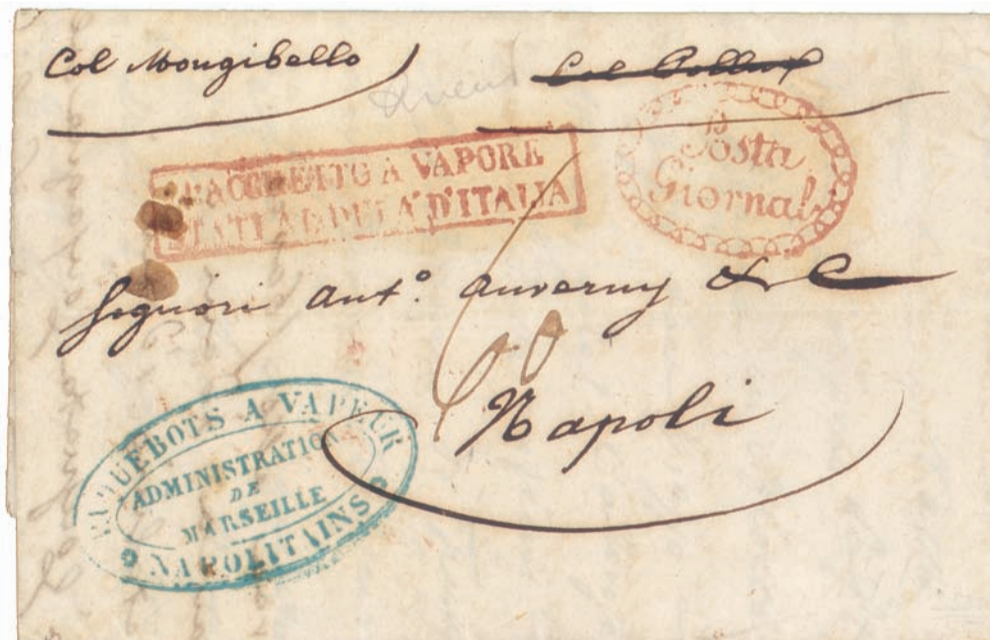 Col Mongibello
Col Pollux
PACCHETTO A VAPORE
STATI ADDULA D'ITALIA
Posta
Giornal
Signori Ant.° Auverny & C
60
Napoli
PAQUEBOTS A VAPEUR
ADMINISTRATION
DE
MARSEILLE
NAPOLITAINS